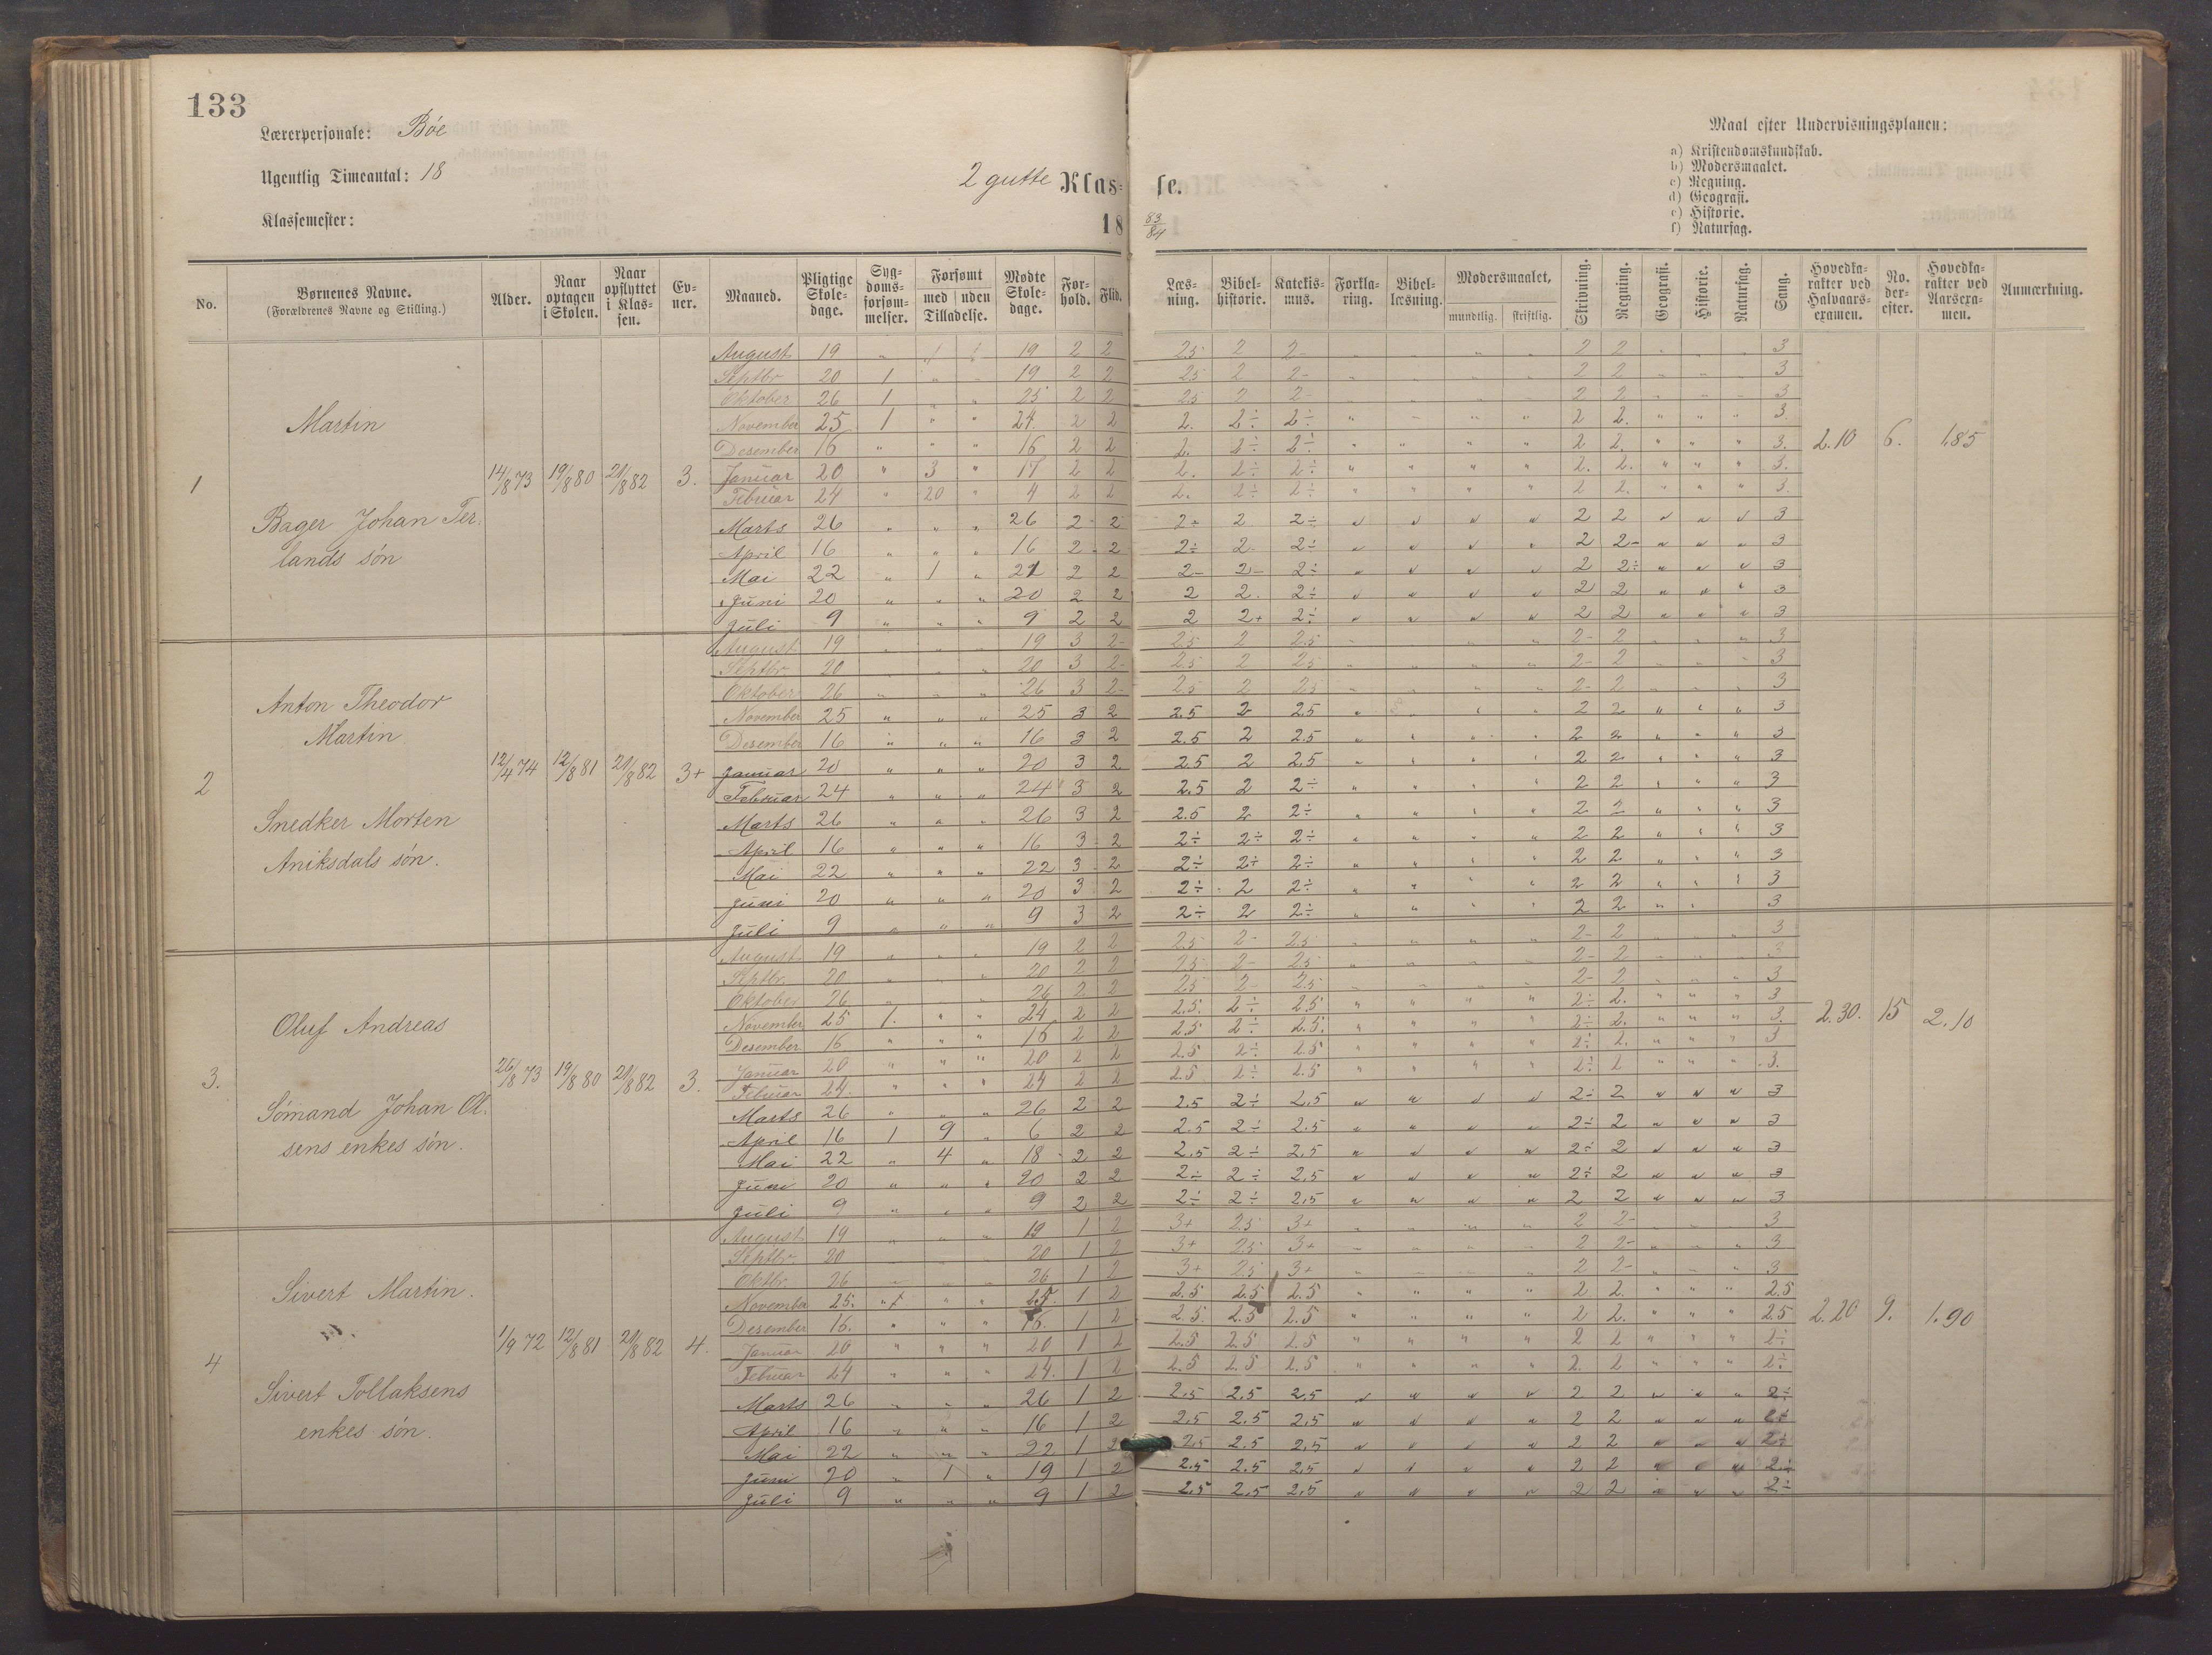 133
Lærerpersonale: Bóe
Ugentlig Timeantal: 18
Klassemester:
2 gutte Klas- se.
18 83/84
Maal efter Undervisningsplanen:
a) Kristendomskundskab.
b) Modersmaalet.
c) Regning.
d) Geografi.
e) Historie.
f) Naturfag.
No. | Børnenes Navne. (Forældrenes Navne og Stilling.) | Alder. | Naar optagen i Skolen. | Naar opflyttet i Klassen. | Evner. | Maaned. | Pligtige Skoledage. | Sygdomsforsømmelser. | Forsømt med Tilladelse. | uden | Mødte Skoledage. | Forhold. | Flid. | Læsning. | Bibelhistorie. | Katekismus. | Forklaring. | Bibellæsning. | Modersmaalet, mundtlig. | skriftlig. | Skrivning. | Regning. | Geografi. | Historie. | Naturfag. | Sang. | Hovedkarakter ved Halvaarsexamen. | No. derefter. | Hovedkarakter ved Aarsexamen. | Anmærkning.
1 Martin
Bager Johan Ter-
lands són
14/8 73 19/8 80 21/8 82 3.
2.10 6. 1.85
August 19 " 19 2 2 2.5 2 2- 2 2 3
Septbr 20 1 19 2 2 2.5 2 2- 2 2 3
Oktober 26 1 25 2 2 2.5 2 2- 2 2 3
November 25 1 " " 24 2 2 2. 2÷ 2÷ 2 2. 3.
Desember 16 " " " 16 2 2 2. 2÷ 2÷ 2 2. 3.
Januar 20 " 3 " 17 2 2 2. 2÷ 2÷ 2. 2. 3.
Februar 24 " 20 " 4 2 2 2. 2÷ 2÷ 2 2. 3.
Marts 26 " " " 26 2 2 2÷ 2 2÷ 2 2 3
April 16 " " " 16 2 2 2÷ 2 2÷ 2 2- 3
Mai 22 " 1 " 21 2 2 2- 2- 2÷ 2 2÷ 3
Juni 20 " " " 20 2 2 2 2 2÷ 2 2 3
Juli 9 " " " 9 2 2 2 2+ 2÷ 2 2 3
2 Anton Theodor
Martin
Snedker Morten
Aniksdals són.
12/4 74 12/8 81 21/8 82 3+
August 19 19 3 2- 2.5 2 2.5 2- 2 3
Septbr. 20 20 3 2- 2.5 2 2.5 2- 2 3
Oktober 26 26 3 2- 2.5 2 2.5 2- 2 3
November 25 " " " 25 3 2 2.5 2 2.5 2 2 3
Desember 16 " " " 16 3 2 2.5 2 2.5 2 2 3
Januar 20 " " " 20 3 2 2.5 2 2.5 2 2 3
Februar 24 " " " 24 3 2 2.5 2 2÷ 2 2 3
Marts 26 " " " 26 3 2 2.5 2 2÷ 2 2 3
April 16 " " " 16 3 2 2÷ 2÷ 2÷ 2 2 3
Mai 22 " " " 22 3 2 2÷ 2÷ 2÷ 2 2 3
Juni 20 " " " 20 3 2 2÷ 2 2÷ 2 2 3
Juli 9 " " " 9 3 2 2÷ 2 2÷ 2 2 3
3. Oluf Andreas
Sómand Johan Ol-
sens enkes són.
26/8 73 19/8 80 21/8 82 3.
2.30. 15 2.10
August 19 19 2 2 2.5 2- 2.5 2- 2 3
Septbr. 20 20 2 2 2.5 2- 2.5 2- 2 3
Oktober 26 26 2 2 2.5 2- 2.5 2- 2 3
November 25 1. " " 24 2 2 2.5. 2÷ 2.5 2÷ 2. 3
Desember 16 " " " 16 2 2 2.5 2÷ 2.5. 2÷ 2. 3.
Januar 20 " " " 20 2 2 2.5 2÷ 2.5 2÷ 2. 3
Februar 24. " " " 24 2 2 2.5 2÷ 2.5 2÷ 2 3.
Marts 26 " " " 26 2 2 2.5 2÷ 2.5 2÷ 2 3
April 16 1 9 " 6 2 2 2.5 2÷ 2.5 2÷ 2 3
Mai 22 " 4 " 18 2 2 2.5 2÷ 2.5 2÷ 2 3
Juni 20 " " " 20 2 2 2÷ 2÷ 2.5 2÷ 2 3
Juli 9 " " " 9 2 2 2÷ 2÷ 2.5 2 2 3
4 Sivert Martin.
Sivert Tollaksens
enkes són.
1/9 72 12/8 81 21/8 82 4.
2.20 9. 1.90
August 19 19 1 2 3+ 2.5 3+ 2 2- 3
Septbr. 20 20 1 2 3+ 2.5 3+ 2 2- 3
Oktbr. 26 26 1 2 3+ 2.5 3+ 2 2- 3
November 25. " " 25. 1 2 2.5 2.5 2.5 2 2. 2.5
Desember 16. " " " 16. 1 2 2.5. 2.5 2.5 2 2. 2.5
Januar 20 " " " 20 1 2 2.5 2.5 2.5 2 2 2÷
Februar 24 " " " 24. 1 2 2.5 2.5 2.5 2. 2 2÷
Marts 26 " " " 26 1 2 2.5 2.5 2.5 2 2 2÷
April 16 " " " 16 1 2 2.5 2.5 2.5 2 2 2÷
Mai 22 " " " 22 1 2 2.5 2.5 2.5 2 2 2÷
Juni 20 " 1 " 19 1 2 2.5 2.5 2.5 2 2 2÷
Juli 9 " " " 9 1 2 2.5 2.5 2.5 2 2 2÷